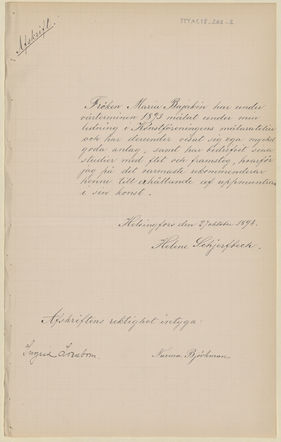 Afskrift.
Fröken Maria Bugukin har under
vårterminen 1893 målat under min
ledning i Konstföreningens målareatelier
och har derunder visat sig ega mycket
goda anlag, samt har bedrifvit sina
studier med flit och framsteg, hvarför
jag på det varmaste rekommenderar
henne till erhållande af uppmuntran
i sin konst.
Helsingfors den 2 oktober 1894.
Helene Schjerfbeck.
Afskriftens riktighet intyga:
Ingrid
Nanna Björkman.